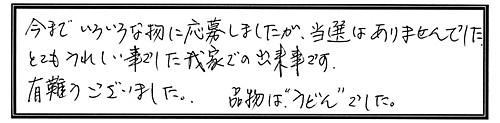 今まで いろいろな物に応募しましたが、当選は ありませんでした
とてもうれしい事でした我家での出来事です.
有難うございました。 品物は"うどん"でした。